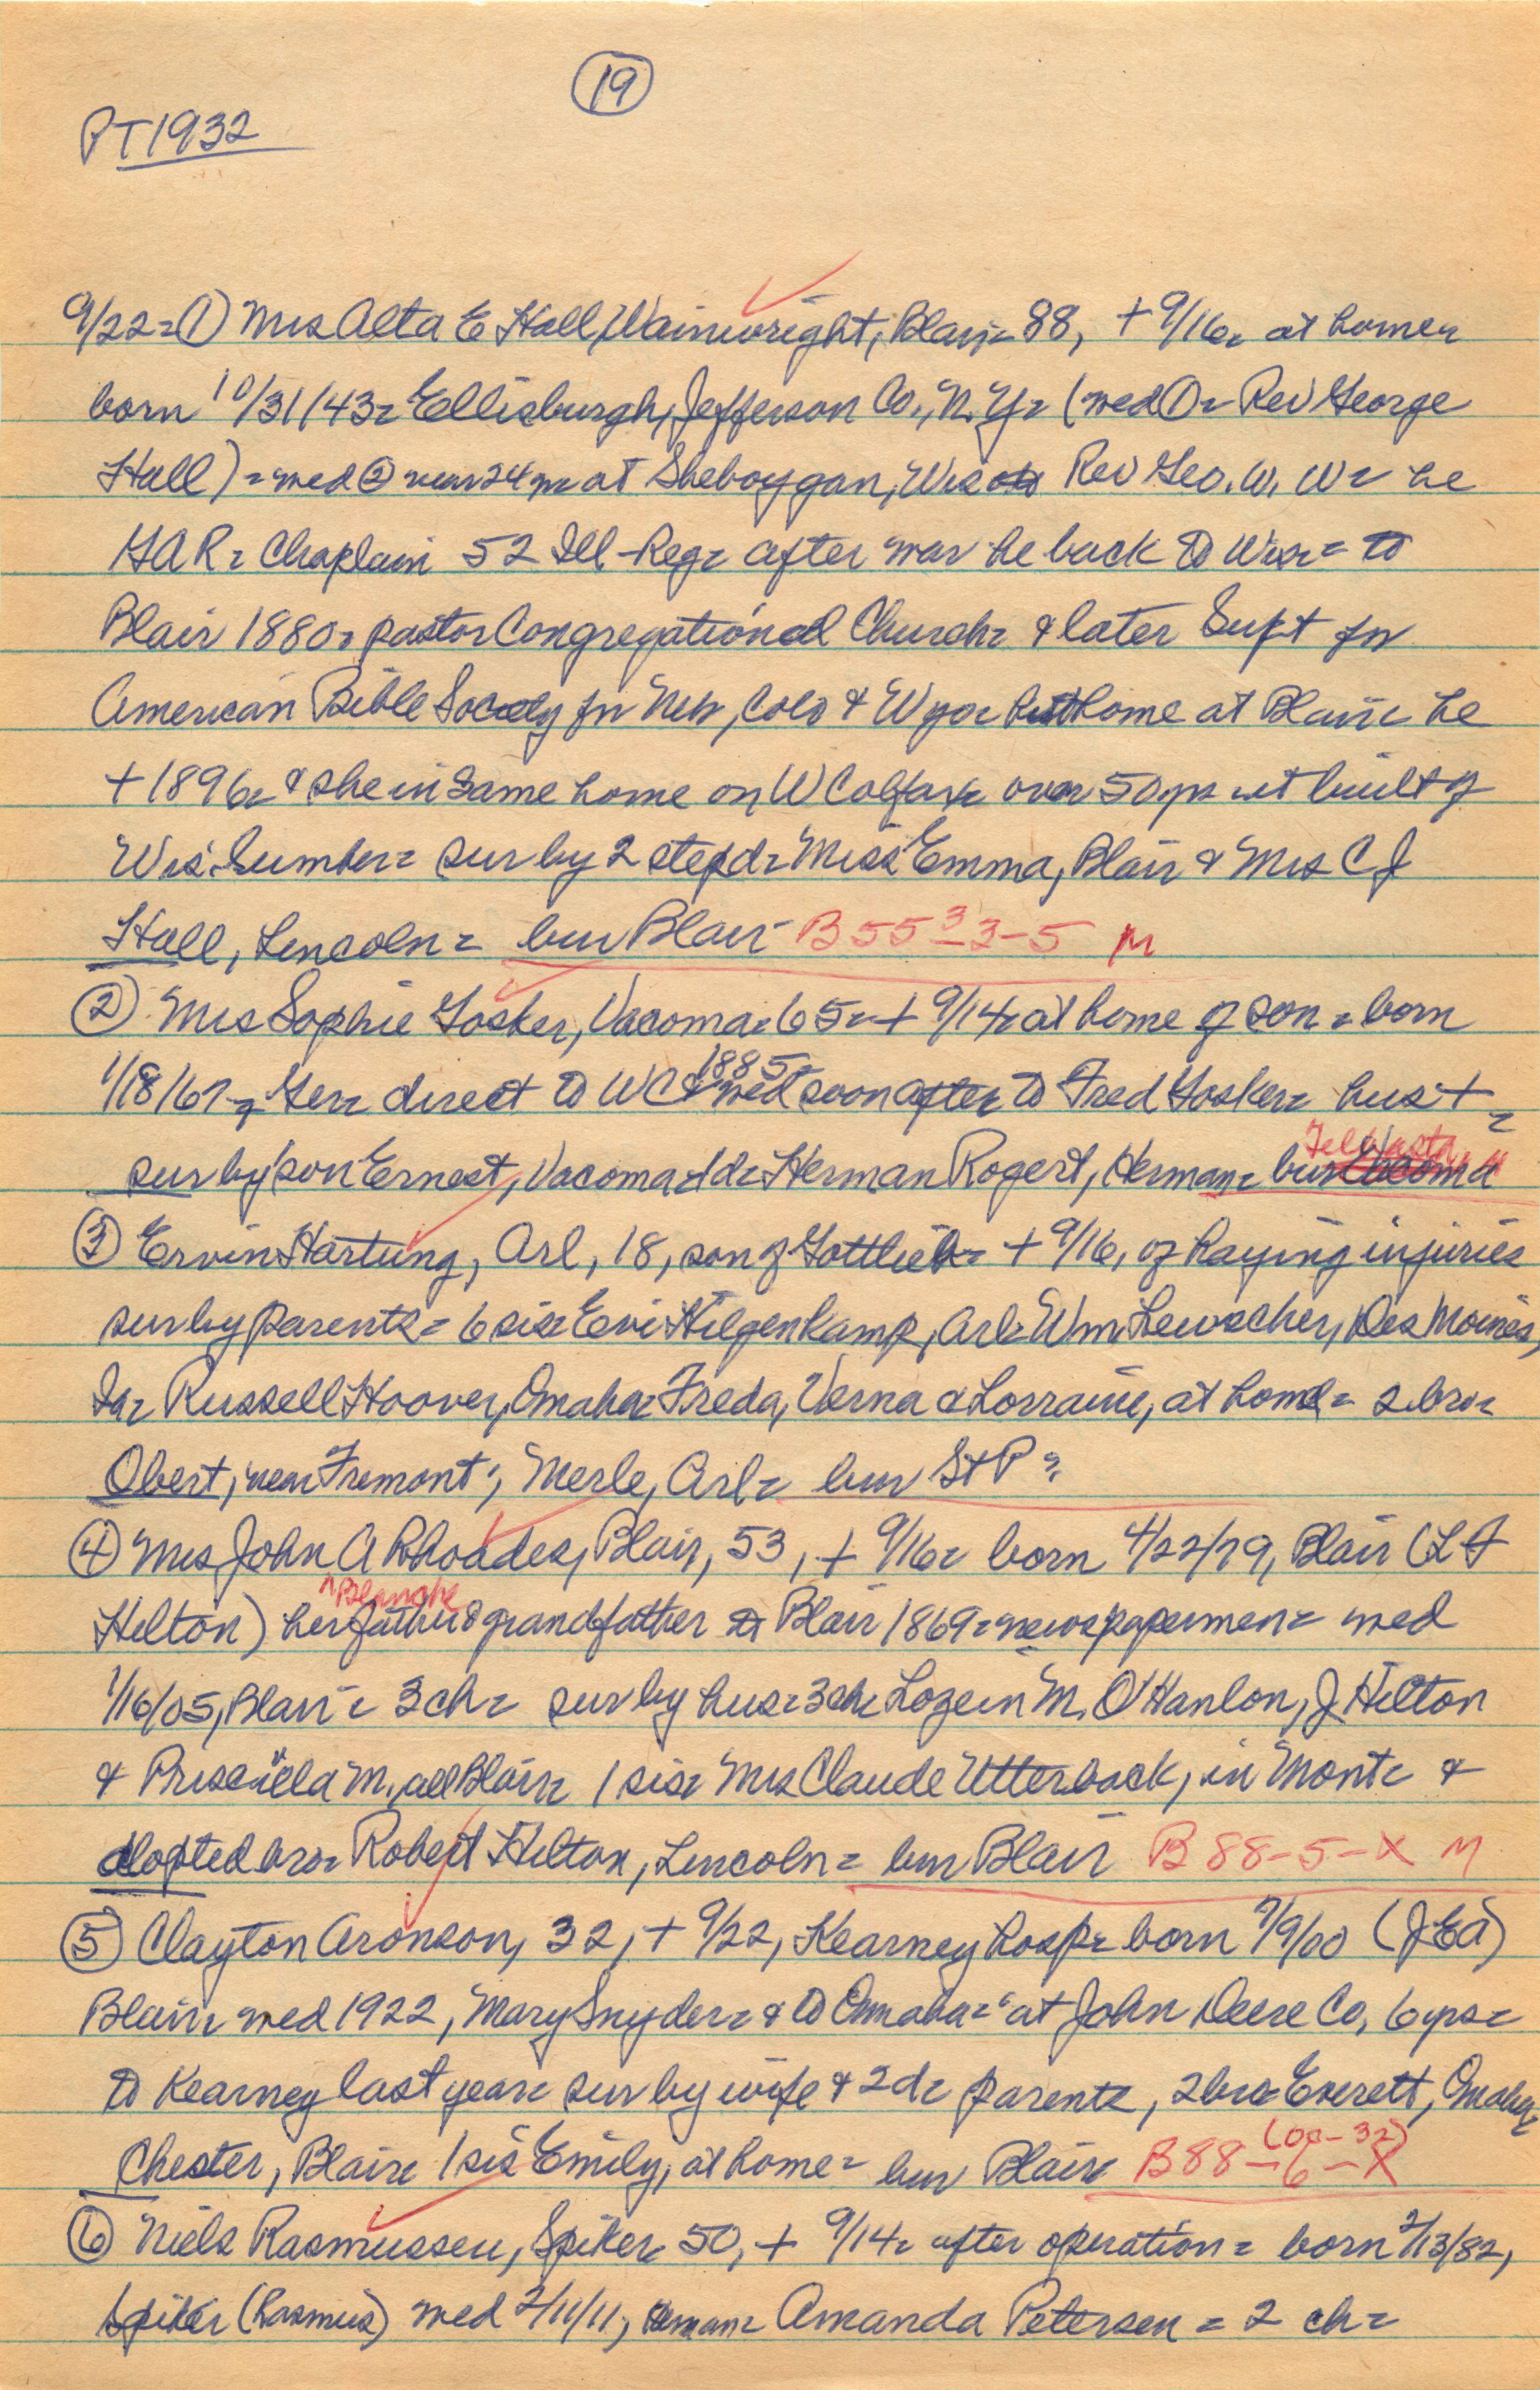 19
PT1932
9/22= ① Mrs Alta E Hall Wainwright, Blair= 88, + 9/16= at home=
born 10/31/43= Ellisburgh, Jefferson Co., N.Y= (med ①= Rev George
Hall)= med ② at Sheboygan, Wis Rev Geo. W. W= he
GAR= Chaplain 52 Ill-Reg= after war he back to Wis= to
Blair 1880= pastor Congregational Church= & later Supt for
American Bible Society for Neb, Colo & Wyo= but home at Blair= he
+ 1896= & she in same home on W Colfax= over 50 yrs it built of
Wis. Lumber= sur by 2 stepd= Miss Emma, Blair & Mrs C J
Hall, Lincoln= bur Blair- B 55 3 3-5 M
② Mrs Sophie Gosker, Vacoma= 65= + 9/14= at home of son= born
1/18/67= Ger= direct to WC 1885= & med soon after to Fred Gosker= hus +=
sur by son Ernest, Vacoma & 1d= Herman Rogert, Herman= bur Vacoma
③ Ervin Hartung, Arl, 18, son of Gottlieb= + 9/16, of haying injuries
sur by parents= 6 sis= Hilgenkamp, Arl= Wm Lewscher, Des Moines,
Ia= Russell Hoover, Omaha= Freda, Verna & Lorraine, at home= 2 bro=
Obert, near Fremont; Merle, Arl= bur St P=
④ Mrs John A Rhoades, Blair, 53, + 9/16= born 4/22/79, Blair (L F
Hilton) "Blanche her father & grandfather to Blair 1869= newspapermen= med
1/16/05, Blair= 3 ch= sur by hus= 3 ch= M. O'Hanlon, J Hilton
& Priscilla M., all Blair= 1 sis= Mrs Claude Utterback, in Mont= &
adopted bro= Robert Hilton, Lincoln= bur Blair B 88-5-X M
⑤ Clayton Aronson, 32, + 9/22, Kearney hosp= born 7/9/00 (J E A)
Blair= med 1922, Mary Snyder= & to Omaha= at John Deere Co, 6 yrs=
to Kearney last year= sur by wife & 2d= parents, 2 bro= Everett, Omaha=
Chester, Blair= 1 sis Emily, at home= bur Blair= B 88-6-X (00-32)
⑥ Niels Rasmussen, Spiker= 50, + 9/14= after operation= born 2/13/82,
Spiker (Rasmus) med 2/11/11, Herman= Amanda Petersen= 2 ch=